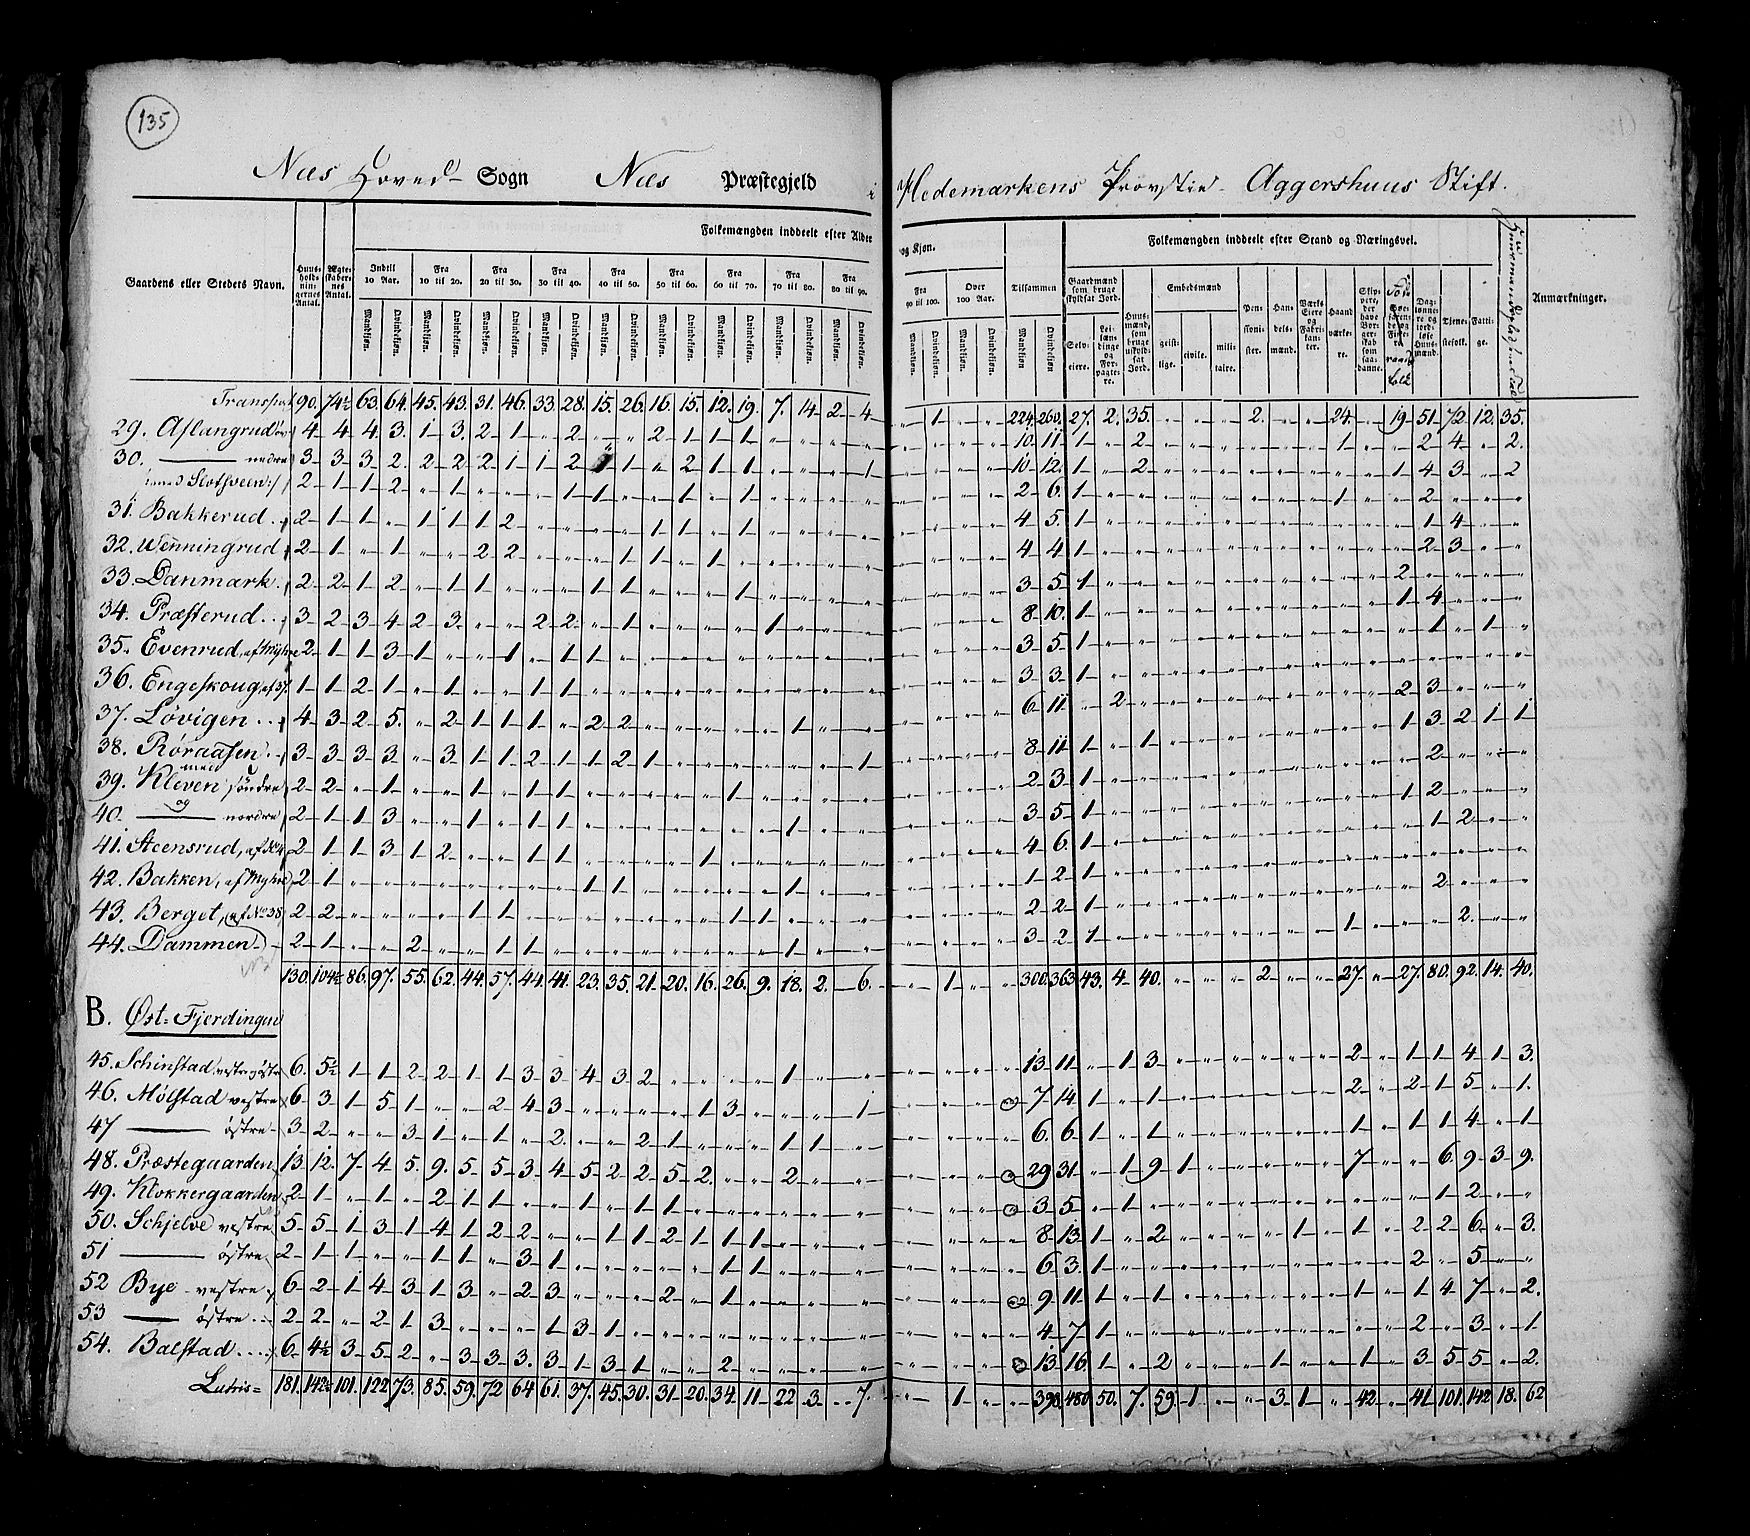 135
Næs Hoved Sogn Næs Præstegjeld i Hedemarkens Provstie Aggershuus Stift.
Folkemængden inddeelt efter Alder og Kjøn.
Folkemængden inddeelt efter Stand og Næringsvei.
Gaardens eller Stedets Navn.
Huusholdningernes Antal.
Ægteskabernes Antal.
Indtil 10 Aar.
Fra 10 til 20.
Fra 20 til 30.
Fra 30 til 40.
Fra 40 til 50.
Fra 50 til 60.
Fra 60 til 70.
Fra 70 til 80.
Fra 80 til 90.
Fra 90 til 100.
Over 100 Aar.
Tilsammen
Mandkiøn. Qvindekiøn.
Gaardmænd som bruge skyldsat Jord.
Selveiere.
Leilændinge og Forpagtere.
Huusmænd, som bruge uskyldsat Jord.
Embedsmænd
geistlige. civile. militaire.
Pensionister.
Handelsmænd.
Værks Eiere og Fabrikanter.
Haandværkere.
Tjenestefolk.
Fattige.
Anmærkninger.
Transport 90. 74½ 63. 64. 45. 43. 31. 46. 33. 28. 15. 26. 16. 15. 12. 19. 7. 14. 2. 4. 1. 224. 260. 27. 2. 35. 2. 24. 19. 51. 72. 12. 35.
29. Aslangrud 4 4 4 3 1 3 2 1 2 2 1 1 1 10 11 1 2 1 2 4 2
30. nedre 3 3 3 2 2 2 2 1 1 2 1 2 1 1 1 10 12 1 2 1 4 3 2
med Slotsveen 2 1 1 2 1 1 1 1 1 2 6 1 1 2
31. Bakkerud 2 1 1 1 1 1 2 1 1 1 4 5 1 1 4
32. Wenningrud 2 1 1 2 2 1 1 1 4 4 1 2 3
33. Danmark 2 2 1 2 1 1 1 1 1 3 5 1 2
34. Præsterud 3 2 3 4 2 3 2 2 1 1 8 10 1 1 4
35. Evenrud, af Myhre 2 1 1 3 1 1 1 1 3 5 1 1 1
36. Engeskoug, af 37 1 1 2 1 1 1 1 3 3 1
37. Løvigen 4 3 2 5 2 1 1 1 2 2 1 6 11 2 2 3
38. Røraasen 3 3 3 3 3 1 1 2 1 1 2 1 1 8 11 1 1 1 3 2 1 1
med
39. Kleven søndre 2 2 1 1 1 1 1 2 3 1 2
og
40. nordre 2 1 1 3 1 1 1 1 3 5 1 1 2
41. Steensrud 2 1 1 3 1 2 1 1 1 4 6 1 1 2
42. Bakken, af Myhre 2 1 1 1 1 1 2 1
43. Berget, af No 38 2 2 1 1 1 1 2 2 1 2
44. Dammen 2 1 2 1 1 1 3 2 1 1 2
130. 104½ 86. 97. 55. 62. 44. 57. 44. 41. 23. 35. 21. 20. 16. 26. 9. 18. 2. 6. 1 300. 363 43. 4 40. 2 27. 27. 80. 92. 14. 40.
B. Øst-Fjerdingen
45. Schinstad 6. 5½ 1 1 2 2 1 1 3 3 4 3 2 1 13 11 1 3 2 1 1 4 1 3.
46. Mølstad vestre 6 3 1 5 1 2 4 3 1 3 1 7 14 1 1 2 2 1 5 1
47 østre 3 2 3 1 1 2 2 1 1 1 6 6 1 1 1 1 1 4 1
48. Præstegaarden 13 12. 7 4 5. 9. 5 5 3 4 5 2 2 5 2 2 29 31 1 9 1 7 6 9 3 9.
49. Klokkergaarden 2 1 1 2 1 1 1 1 1 3 5 1 1 2
50. Schjelve vestre 5 5 1 3 1 4 1 2 2 1 1 2 1 1 1 8 13 1 2 1 1 2 2 6 3.
51 østre 2 1 1 1 1 3 1 1 1 6 3 1 2 5
52 Bye vestre 6 2 1 4 3 1 3 2 3 2 1 9 11 1 1 1 1 4 7 2.
53 østre 2 2 2 1 3 1 3 1 4 7 1 2 3 1
54. Balstad 6 4½ 3 5 2 3 3 3 3 1 3 1 2 13 16 1 2 1 1 3 5 5 2.
Lateris 181. 142½ 101. 122. 73. 85. 59. 72 64 61. 37. 45. 30. 31. 20. 34. 11. 22 3. 7. 1 398 480 50. 7. 59. 1 3 1 42 41 101. 142 18. 62